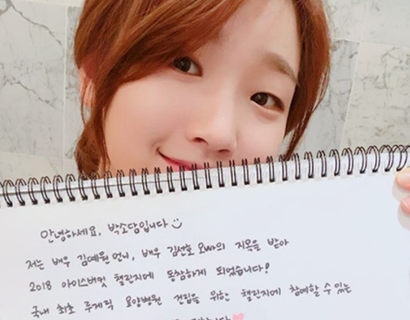 안녕하세요, 박소담입니다
저는 배우 김예원언니, 배우 김선호오빠의 지목을 받아
2018 아이스버킷 챌린지에 동참하게 되었습니다!
국내 최초 루게릭 요양병원 건립을 위한 챌린지에 참여할 수 있는